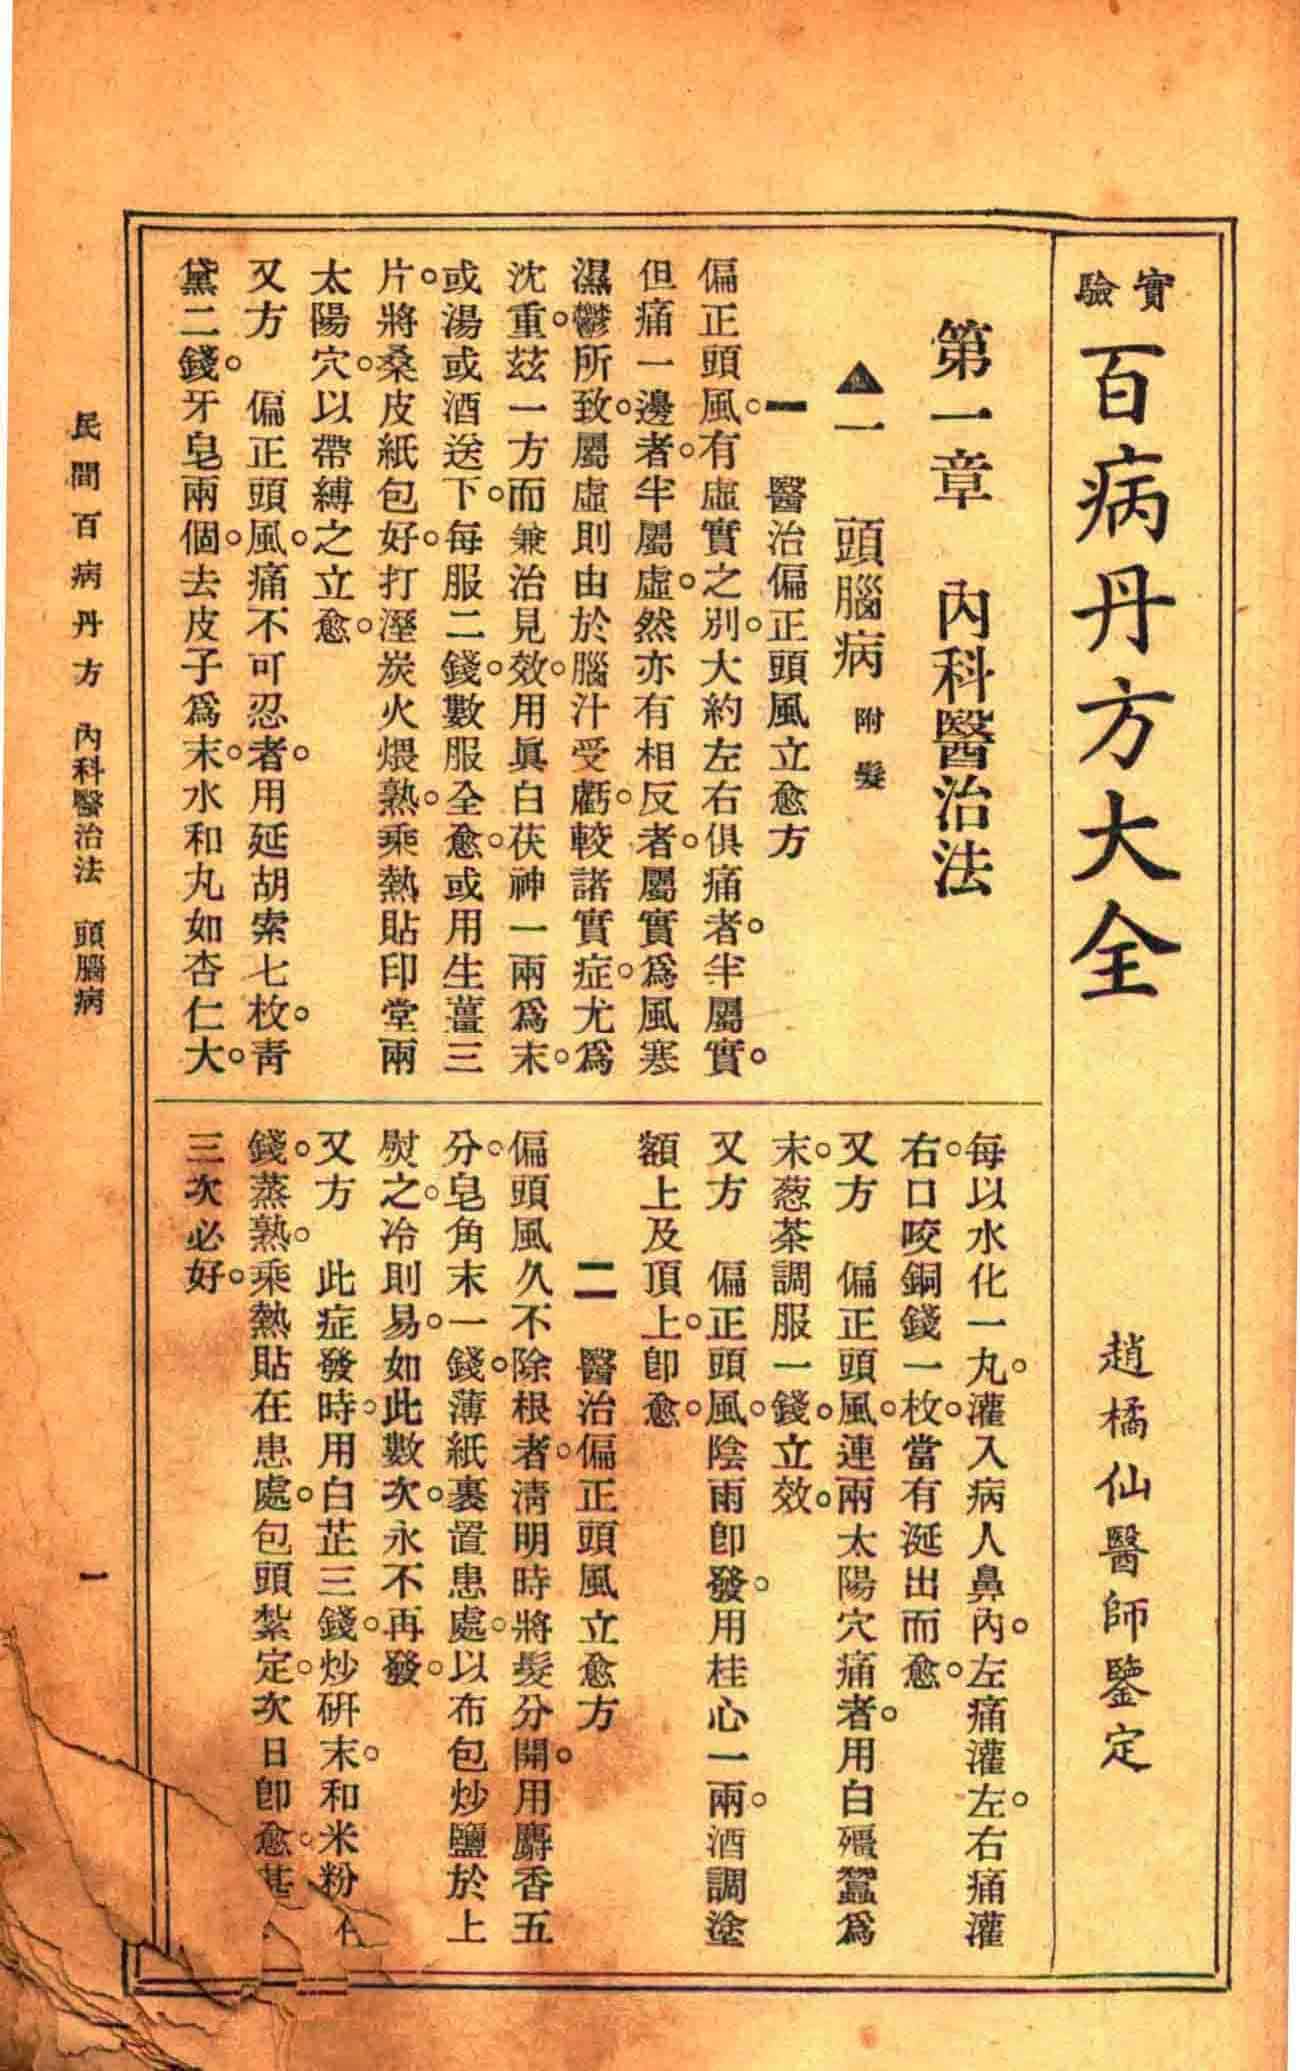 實驗
百病丹方大全
趙橘仙醫師鑒定
第一章　內科醫治法
▲一　頭腦病　附髮
一　醫治偏正頭風立愈方
偏正頭風。有虛實之別。大約左右俱痛者。半屬實。
但痛一邊者。半屬虛。然亦有相反者。屬實爲風寒
濕鬱所致。屬虛則由於腦汁受虧。較諸實症。尤爲
沈重。茲一方而兼治見效。用眞白茯神一兩爲末。
或湯或酒送下。每服二錢。數服全愈。或用生薑三
片。將桑皮紙包好。打溼炭火煨熟。乘熱貼印堂兩
太陽穴。以帶縛之立愈。
又方　偏正頭風。痛不可忍者。用延胡索七枚。靑
黛二錢。牙皂兩個。去皮子爲末。水和丸如杏仁大。
每以水化一丸。灌入病人鼻內。左痛灌左。右痛灌
右。口咬銅錢一枚。當有涎出而愈。
又方　偏正頭風。連兩太陽穴痛者。用白殭蠶爲
末。葱茶調服一錢。立效。
又方　偏正頭風。陰雨卽發。用桂心一兩。酒調塗
額上及頂上。卽愈。
二　醫治偏正頭風立愈方
偏頭風久不除根者。淸明時將髮分開。用麝香五
分。皂角末一錢。薄紙裹置患處。以布包炒鹽於上
熨之。冷則易。如此數次。永不再發。
又方　此症發時。用白芷三錢。炒硏末。和米粉
錢。蒸熟。乘熱貼在患處。包頭紮定。次日卽愈。甚
三次必好。
民間百病丹方　內科醫治法　頭腦病
一